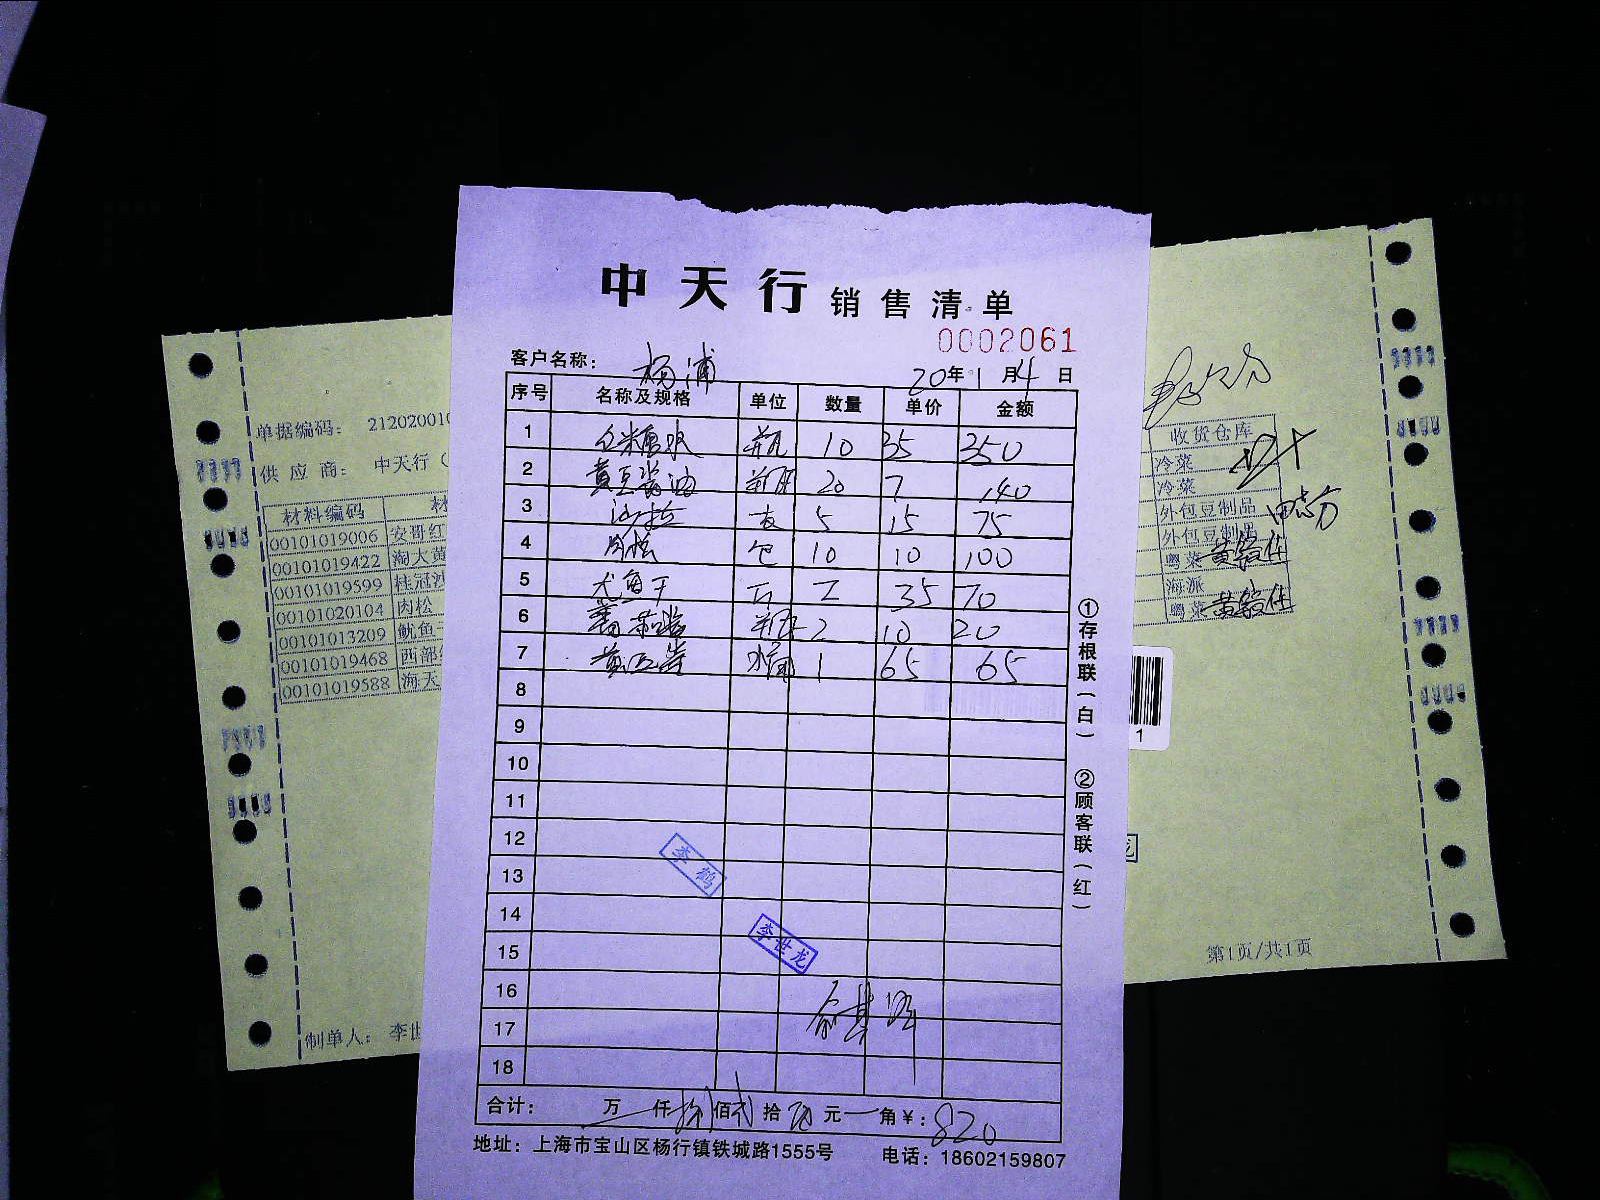 中天行 销售清单
0002061
客户名称: 杨浦 20年 1月 4日
序号 名称及规格 单位 数量 单价 金额
1 瓶 10 35 350
2 黄豆酱油 瓶 20 7 140
3 沙拉 支 5 15 75
4 肉松 包 10 10 100
5 尤鱼干 2 35 70
6 瓶 2 10 20
7 黄豆酱 桶 1 65 65
8
9
10
11
12
13
14
15
16
17
18
李鹤
李世龙
合计: 万 仟 捌佰 贰拾 元 角 ¥: 820
地址: 上海市宝山区杨行镇铁城路1555号 电话: 18602159807
①存根联(白) ②顾客联(红)
单据编码: 21202001
供应商: 中天行(
材料编码 材
00101019006 安哥红
00101019422 淘大黄
00101019599 桂冠沙
00101020104 肉松
00101013209 鱿鱼
00101019468 西部
00101019588 海天
制单人: 李世
收货仓库
冷菜
冷菜
外包豆制品
外包豆制品
粤菜
海派
粤菜
1
龙
第1页/共1页